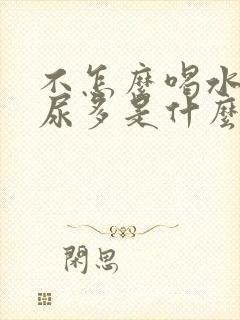 不怎麼喝水
尿多是什麼
閑思